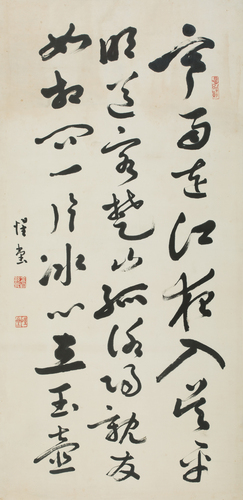 寒雨連江夜入吳平
明送客楚山孤洛陽親友
如相問一片冰心在玉壺
惺